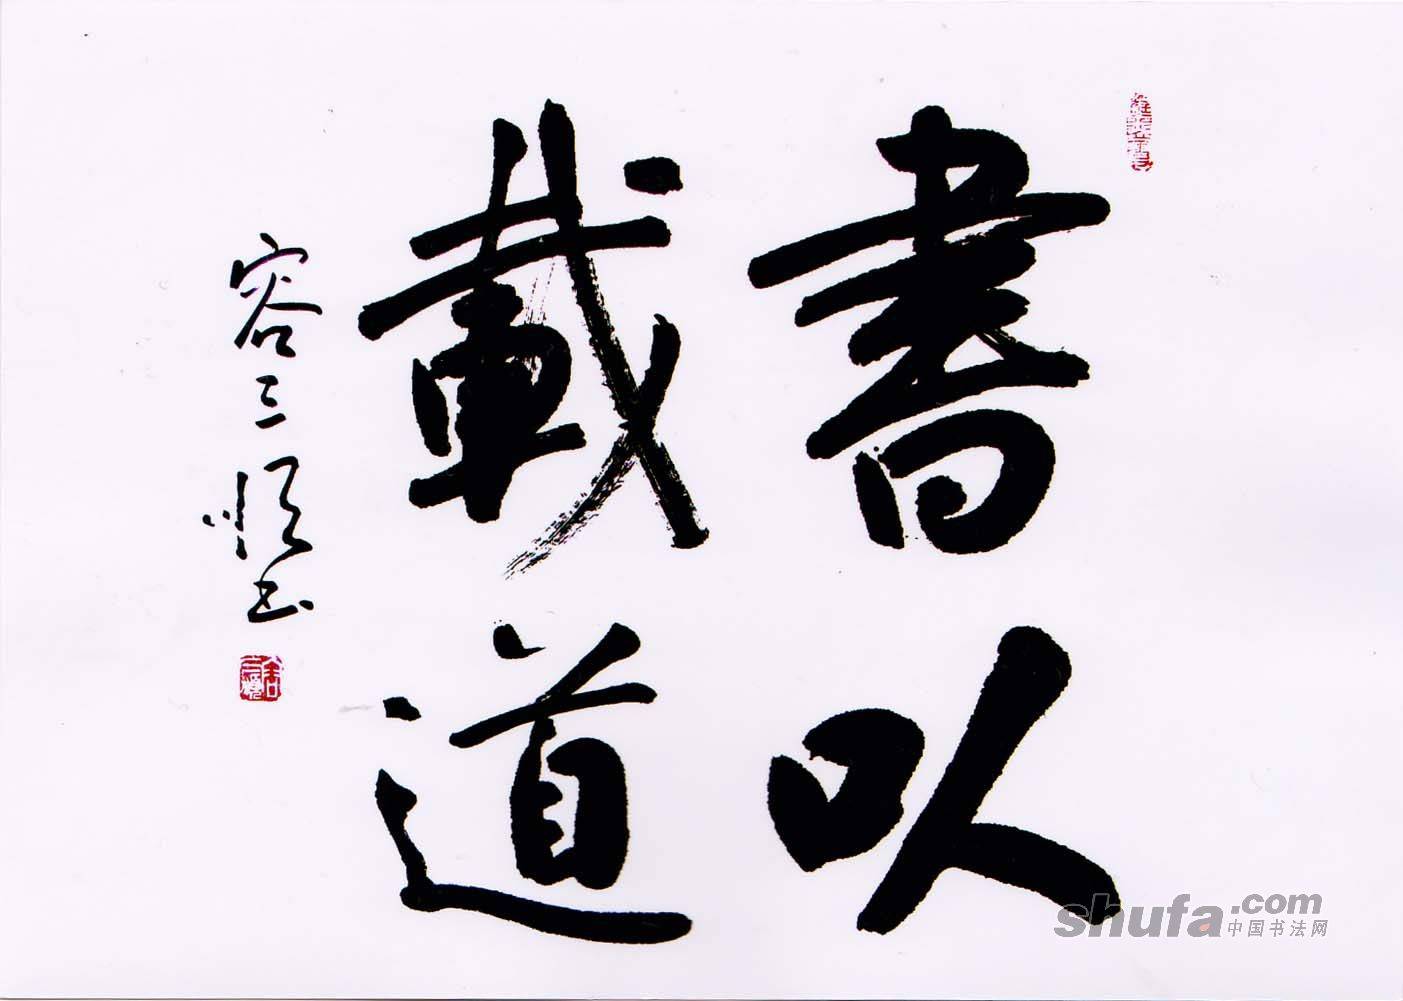 書以
載道
容三书
shufa.com
中国书法网